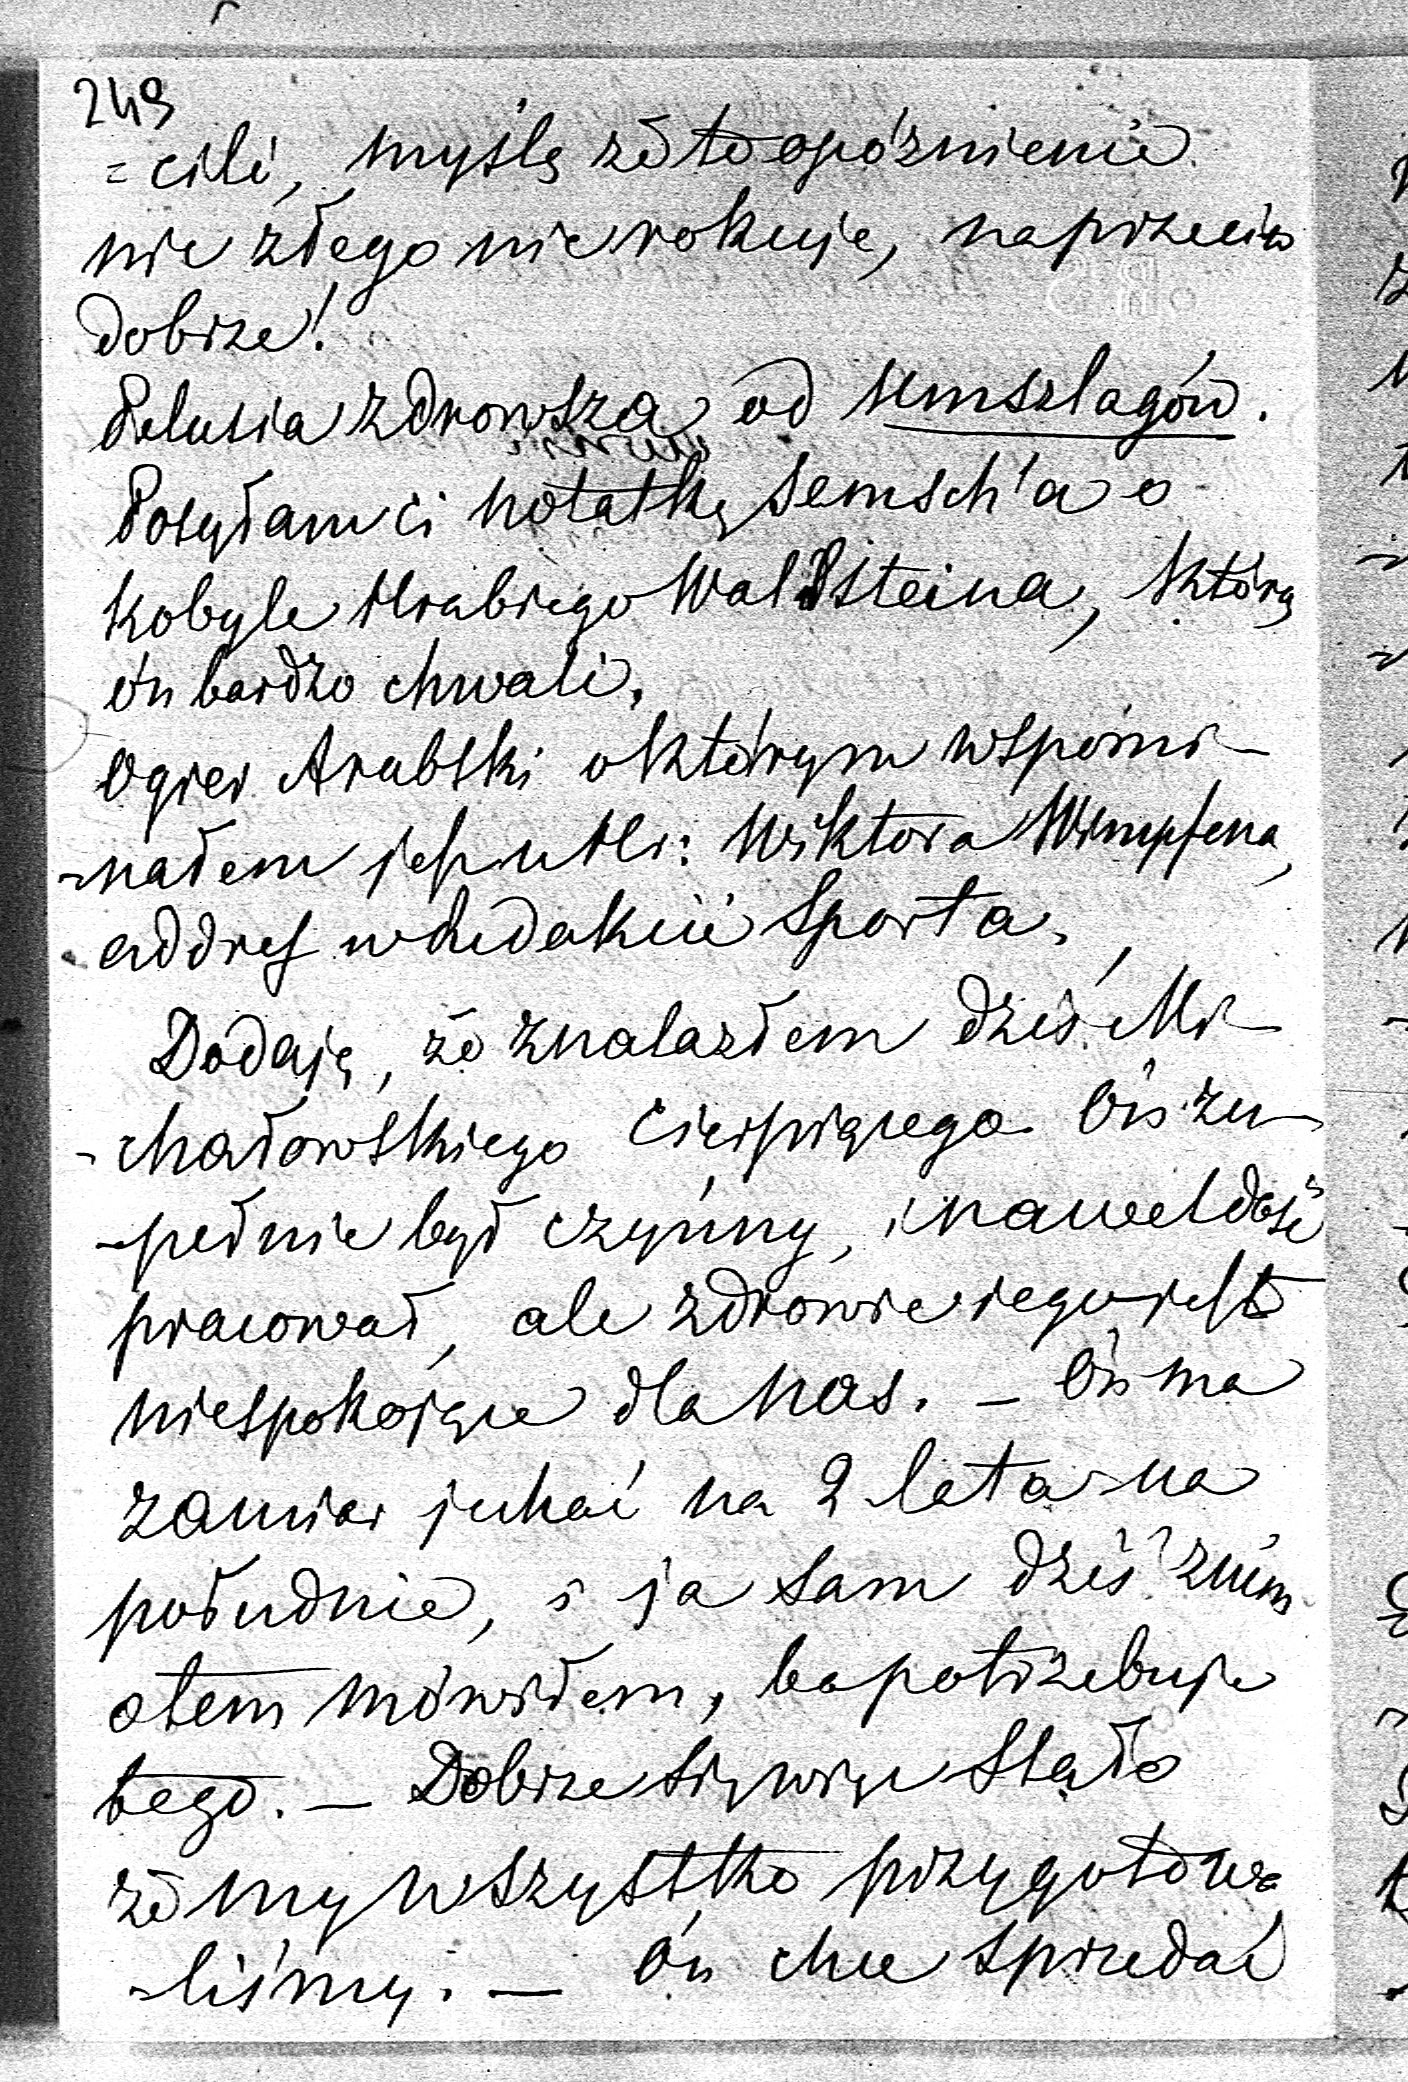 249
=cili, myślę że to opóźnienie
nic złego nie rokuje, naprzeciw
dobrze!
Pelusia zdrowsza od umszlagów.
Posyłam ci notatkę Semsch'a o
kobyle Hrabiego Waldsteina, którą
ón bardzo chwali,
Ogier Arabski o którym wspomi-
-nałem jest u Hr: Wiktora Wimpfena,
addres w Redakcii Sporta.
Dodaję, że znalazłem dziś Mi-
-chałowskiego cierpiącego. Ón zu-
-pełnie był czynny, i nawet dość
pracował, ale zdrowie iego jest
niespokojące dla nas. _ Ón ma
zamiar jechać na 2 lata na
południe, i ja sam dziś z nim
o tem mówiłem, bo potrzebuje
tego. _ Dobrze się więc stało
że my wszystko przygotowa
-liśmy. _ Ón chce sprzedać